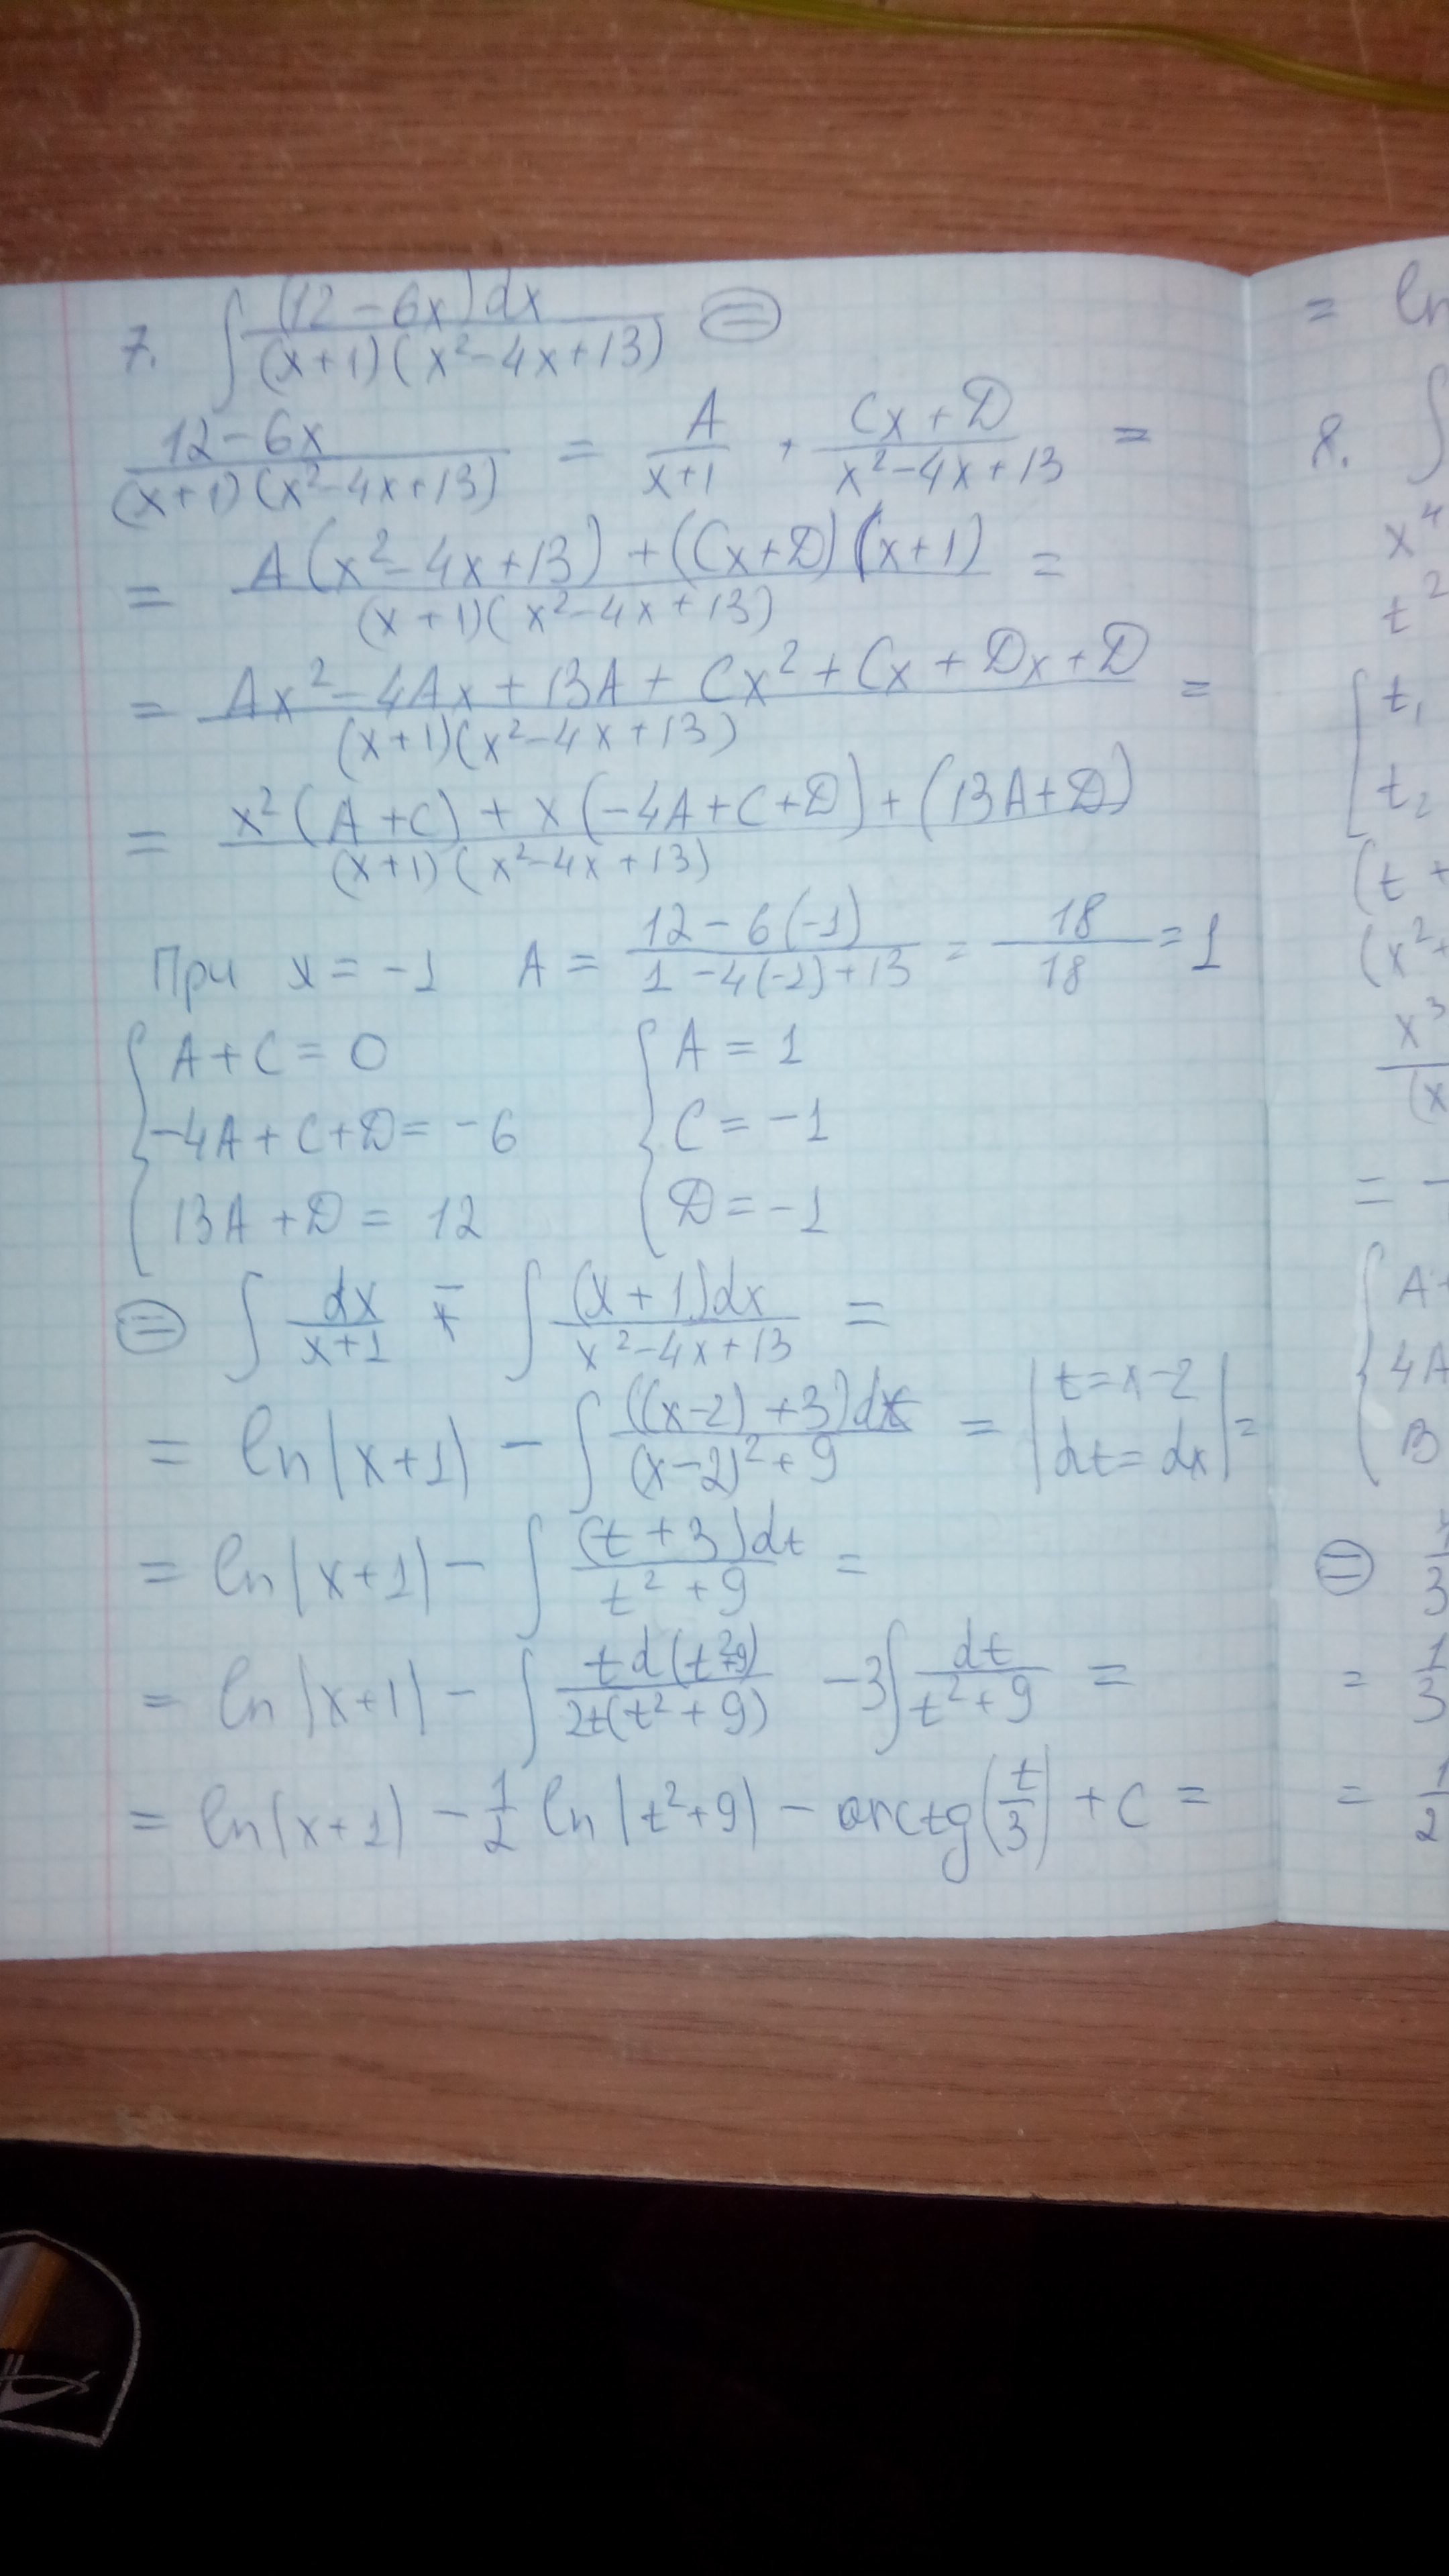 7. ∫ (12-6x)dx / (x+1)(x²-4x+13) ⊜
12-6x / (x+1)(x²-4x+13) = A / x+1 + Cx+D / x²-4x+13 =
= A(x²-4x+13)+(Cx+D)(x+1) / (x+1)(x²-4x+13) =
= Ax²-4Ax+13A+Cx²+Cx+Dx+D / (x+1)(x²-4x+13) =
= x²(A+C)+x(-4A+C+D)+(13A+D) / (x+1)(x²-4x+13)
При x=-1 A = 12-6(-1) / 1-4(-1)+13 = 18 / 18 = 1
{ A+C=0 { A=1
-4A+C+D=-6 C=-1
13A+D=12 D=-1
⊜ ∫ dx / x+1 - ∫ (x+1)dx / x²-4x+13 =
= ln|x+1| - ∫ ((x-2)+3)dx / (x-2)²+9 = | t=x-2
dt=dx | =
= ln|x+1| - ∫ (t+3)dt / t²+9 =
= ln|x+1| - ∫ td(t²+9) / 2t(t²+9) -3∫ dt / t²+9 =
= ln|x+1| - 1/2 ln|t²+9| - arctg(t/3) + C =
= ln
8. ∫
x⁴
t²
[ t₁
t₂
(t +
(x² +
x³
(x
= -
{ A +
4A
B
⊜ / 3
= 1/3
= 1/2